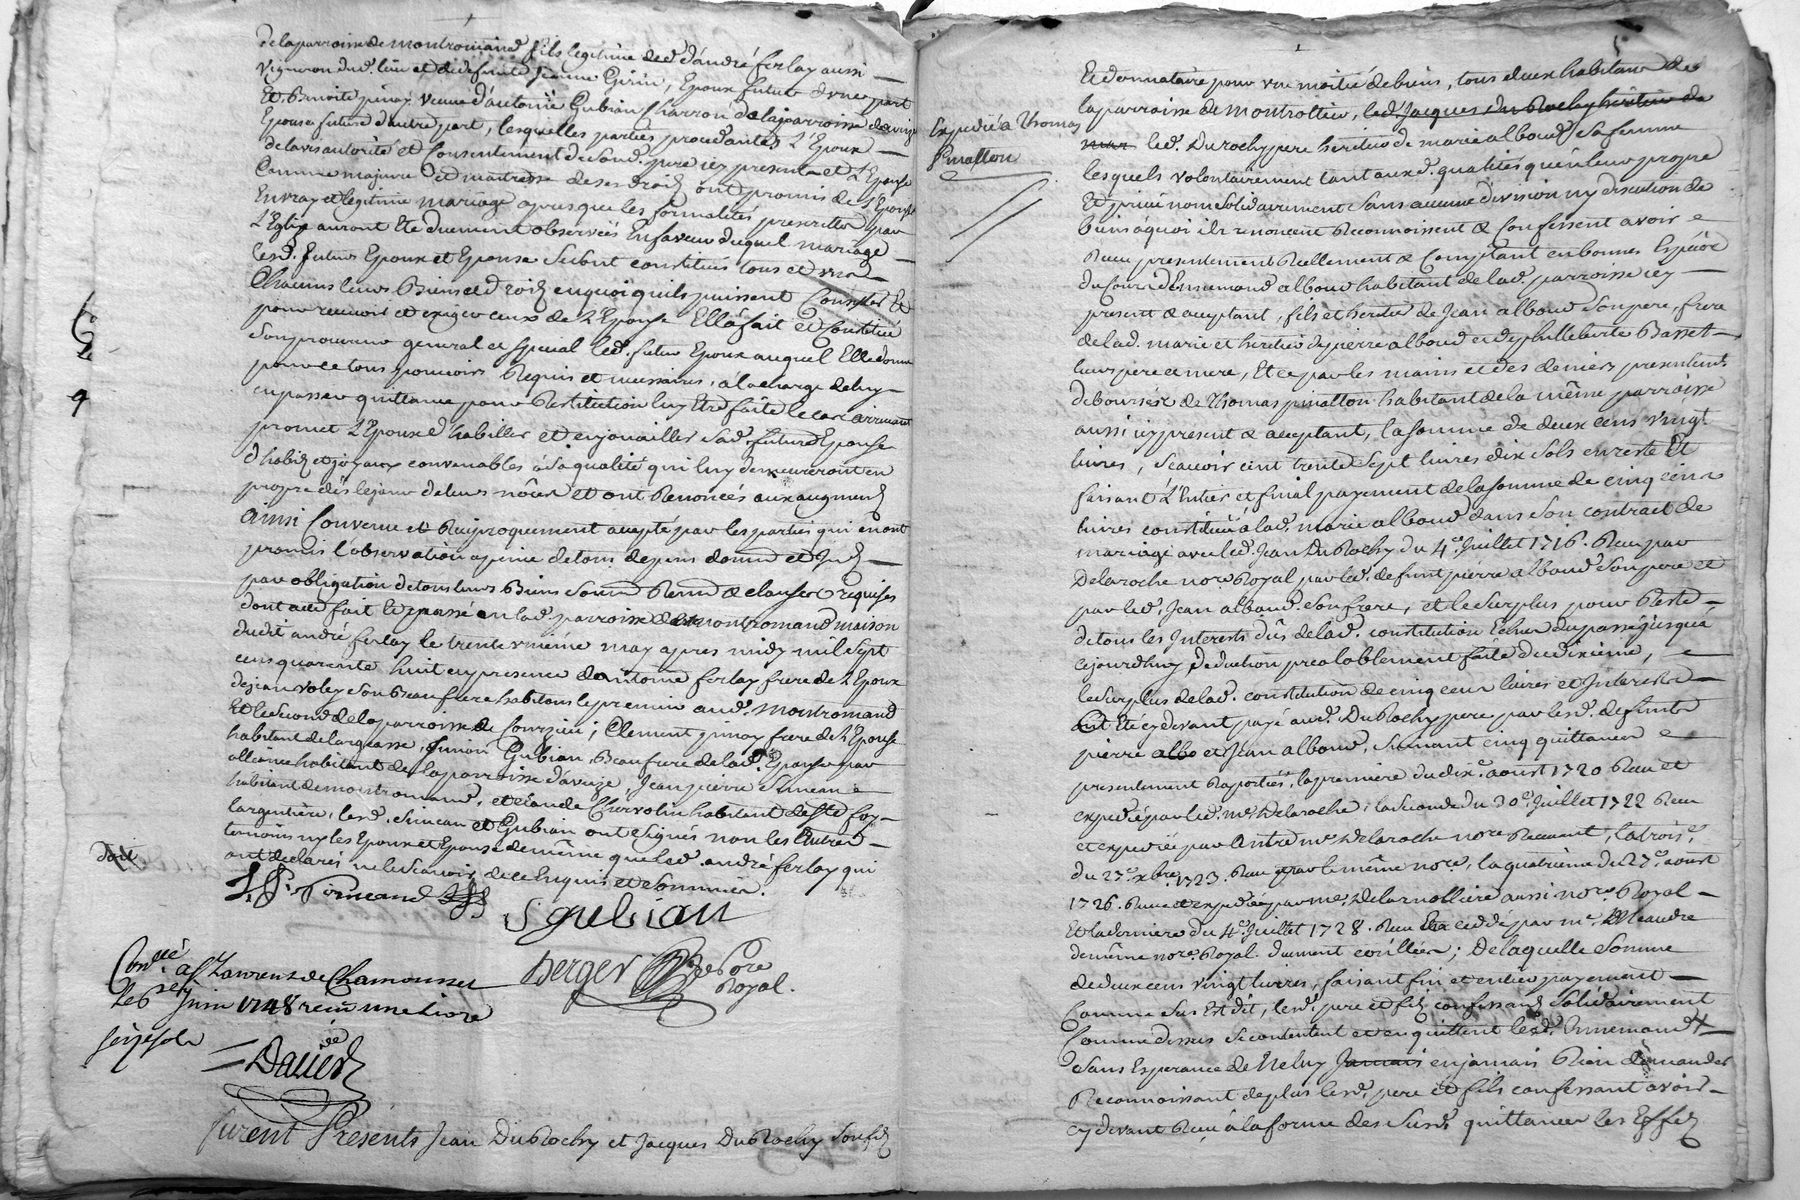 de la parroisse de montromand fils legitime dud. d'andré ferlay aussi
vigneron dud. lieu et de defunte jeanne Girin, Epoux futur d'une part
Et Benoite pinay veuve d'antoine Gubian Charron de la parroisse
Epouse future d'autre part, lesquelles parties procedantes L'Epoux
de la vis autorité et Consentement de sond. pere icy present et L'Epouse
Comme majeure et maitresse de ses droits ont promis de s'Epouser
En vray et legitime mariage apres que les formalités prescrittes par
L'Eglise auront Eté duement observées En faveur duquel mariage
lesd. futurs Epoux et Epouse se sont constitués tous et un
Chacuns leurs Biens et droits en quoi qu'ils puissent Consister Et
pour recevoir et exiger ceux de L'Epouse Elle a fait et Constitué
Son procureur general et special led. futur Epoux auquel Elle donne
pour ce tous pouvoirs Requis et necessaires, à la charge de luy
en passer quittance pour Restitution luy Etre faite le cas arrivant
promet L'Epoux d'habiller et enjouailler sad. future Epouse
d'habits et joyaux convenables à sa qualité qui luy demeureront en
propre dès le jour de leurs nôces et ont Renoncés aux augments
ainsi Convenu et Reciproquement accepté par les parties qui en ont
promis l'observation a peine de tous depens dom. et Int.
par obligation de tous leurs Biens Soum. Renon. & clauses requises
dont acte fait et passé en lad. parroisse de montromand maison
dudit andré ferlay le trente unième may apres midy mil sept
cens quarente huit en presence d'antoine ferlay frere de L'Epoux
de jean voley son Beau frere habitans le premier aud. montromand
Et le second de la parroisse de Courzieu; Clement pinay frere de L'Epouse
habitant de largeasse, simon Gubian Beau frere de lad. Epouse par
alliance habitant de la parroisse d'aveize, Jean pierre Simean
habitant de montromand, et claude Chervolin habitant de Ste foy
largentiere, lesd. Simean et Gubian ont signés non les autres
temoins ny les Epoux et Epouse de même que led. andré ferlay qui
ont declarés ne le sçavoir de ce Enquis et Sommés.
doit
J. P. Simeand
S gubian
berger
Nore
Royal.
Conllé à St Laurens de Chamousset
Le juin 1748 reçu une livre
seize sols
Davier
furent Présents Jean DuRochy et Jacques DuRochy son fils
Expedié a Thomas
Pinatton
Et donnataire pour une moitié de biens, tous deux habitans de
la parroisse de Montrottier, led. Jacques du Rochy heritier de
led. DuRochy pere heritier de marie alboud sa femme
lesquels volontairement tant auxd. qualités qu'en leur propre
Et privé nom solidairement sans aucune division ny discution de
biens à quoi ils renoncent Reconnoissent & Confessent avoir
Reçu presentement Reellement & Comptant en bonnes Espèce
du Cours d'Ennemond alboud habitant de lad. parroisse icy
present & acceptant, fils et heritier de Jean alboud son pere, frere
de lad. marie et heritier de pierre alboud et de philleberte Basset
leurs pere et mere, Et ce par les mains et des deniers presentement
deboursés de Thomas pinatton habitant de la même parroisse
aussi icy present & acceptant, la somme de deux cens vingt
livres, sçavoir cent trente sept livres dix sols en reste Et
faisant L'Entier et final payement de la somme de cinq cens
livres constitué à lad. marie alboud dans son contract de
mariage avec led. Jean DuRochy du 4e. Juillet 1716. Reçu par
Delaroche nore Royal par led. defunt pierre alboud son pere et
par led. Jean alboud son frere, et le surplus pour Reste
de tous les Interests dûs de lad. constitution Echus du passé jusqu'à
cejourdhuy, deduction prealablement faite du dixieme,
le surplus de lad. constitution de cinq cens livres et Interests
ont Eté cy devant payé aud. DuRochy pere par lesd. defunts
pierre albo et Jean alboud, suivant cinq quittances
presentement Raportés, la premiere du dix. aoust 1720 Reçu et
expedié par led. me Delaroche, la seconde du 30e. Juillet 1722 Reçu
et expediée par autre me. Delaroche nore Recevant, la trois.e
du 27e. xbre 1723. Reçu par le même nore, la quatrième du 27e. aoust
1726. Reçu et expediée par me. Delarolliere aussi nore Royal
Et la derniere du 4e. Juillet 1728. Reçu par me. Meaudre
de même nore Royal. duement conllées; De laquelle Somme
de deux cens vingt livres, faisant fin et entier payement
Comme Sus Est dit, lesd. pere et fils confessans solidairement
Comme dessus se contentent et en quittent led. Ennemond
Sans Esperance de Ne luy Jamais en jamais Rien demander
Reconnoissant de plus lesd. pere et fils confessant avoir
cy devant Reçu à la forme des susd. quittances les Effets